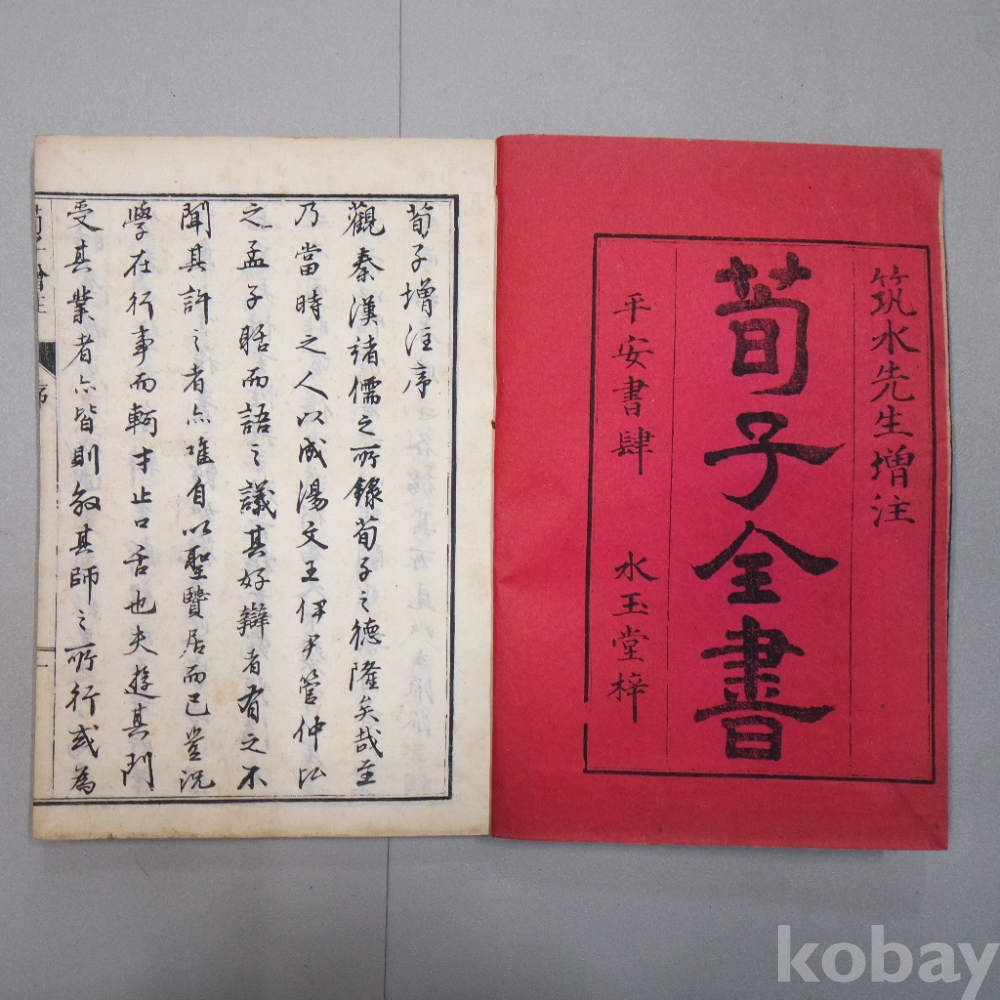 筑水先生增注
荀子全書
平安書肆 水玉堂梓
荀子增注序
觀秦漢諸儒之所錄荀子之德隆矣哉至
乃當時之人以成湯文王伊尹管仲比
之孟子暱而語之議其好辯者有之不
聞其許之者亦唯自以聖贒居而已豈況
學在行事而軻才止口舌也夫遊其門
受其業者亦皆則效其師之所行或為
荀子增注
序
一
kobay